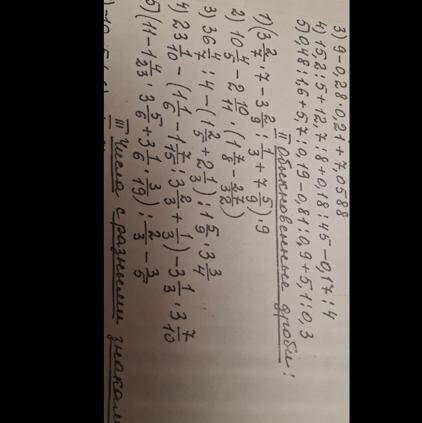 3) 9-0,28·0,21+7,0588
4) 15,2:5+12,7:8+0,18:45-0,17:4
5) 0,48:1,6+5,7:0,19-0,81:0,9+5,1:0,3
II Обыкновенные дроби:
1) (3 2/7 · 7 - 3 2/9 : 1/3 + 7 5/9) · 9
2) 10 4/5 - 2 10/11 · (1 7/8 - 27/32)
3) 36 4/7 : 4 - (1 2/5 + 2 1/3) : 1 5/9 · 3 3/4
4) 23 1/10 - (1 1/6 - 1 7/15 : 3 2/3 + 1/3) - 3 1/3 · 3 7/10
5) (11 - 1 4/23 · 3 5/6 + 3 1/6 · 3/19) : 2/3 - 3/5
III Числа с разными знаками